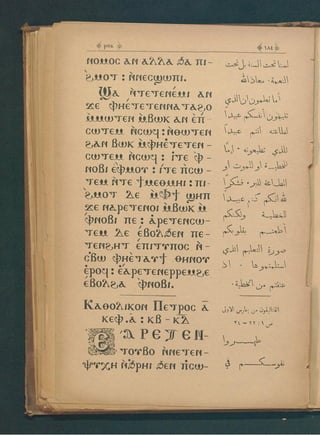 ⲛⲟⲙⲟⲥ ⲁⲛ ⲁⲗⲗⲁ ϧⲁ ⲡⲓ-
ϩ̀ⲙⲟⲧ : ⲛ̀ⲛⲉⲥϣⲱⲡⲓ.
Ϣⲁ ⲛ̀ⲧⲉⲧⲉⲛⲉ̀ⲙⲓ ⲁⲛ
ϫⲉ ⲫⲏⲉ̀ⲧⲉⲧⲉⲛⲛⲁⲧⲁϩⲟ
ⲙ̀ⲙⲱⲧⲉⲛ ⲙ̀ⲃⲱⲕ ⲁⲛ ⲉ̀ⲡ̀-
ⲥⲱⲧⲉⲙ ⲛ̀ⲥⲱϥ : ⲛ̀ⲑⲱⲧⲉⲛ
ϩⲁⲛ ⲃⲱⲕ ⲙ̀ⲫⲏⲉ̀ⲧⲉⲧⲉⲛ-
ⲥⲱⲧⲉⲙ ⲛ̀ⲥⲱϥ : ⲓ̀ⲧⲉ ⲫ̀-
ⲛⲟⲃⲓ ⲉ̀ⲫⲙⲟⲩ : ⲓ̀ⲧⲉ ⲡ̀ⲥⲱ-
ⲧⲉⲙ ⲛ̀ⲧⲉ ϯⲙⲉⲑⲙⲏⲓ : ⲡⲓ-
ϩ̀ⲙⲟⲧ ⲇⲉ ⲙ̀ⲫϯ ϣⲏⲡ
ϫⲉ ⲛⲁⲣⲉⲧⲉⲛⲟⲓ ⲙ̀ⲃⲱⲕ ⲙ̀
ⲫ̀ⲛⲟⲃⲓ ⲡⲉ : ⲁ̀ⲣⲉⲧⲉⲛⲥⲱ-
ⲧⲉⲙ ⲇⲉ ⲉ̀ⲃⲟⲗϧⲉⲛ ⲡⲉ-
ⲧⲉⲛϩⲏⲧ ⲉ̀ⲡⲓⲧⲩⲡⲟⲥ ⲛ̀-
ⲥ̀ⲃⲱ ⲫⲏⲉ̀ⲧⲁⲩϯ ⲑⲏⲛⲟⲩ
ⲉ̀ⲣⲟϥ : ⲉ̀ⲁ̀ⲣⲉⲧⲉⲛⲉⲣⲣⲉⲙϩⲉ
ⲉ̀ⲃⲟⲗϩⲁ ⲫ̀ⲛⲟⲃⲓ.
Ⲕⲁⲑⲟⲗⲓⲕⲟⲛ Ⲡⲉⲧⲣⲟⲥ ⲁ̅
ⲕⲉⲫ.ⲁ : ⲕⲃ - ⲕⲇ
ⲈⲀⲢⲈⲦⲈⲚ-
ⲧⲟⲩⲃⲟ ⲛ̀ⲛⲉⲧⲉⲛ-
ⲯⲩⲭⲏ ⲛ̀ϩ̀ⲣⲏⲓ ϧⲉⲛ ⲡ̀ⲥⲱ-
٦٨٤
لسنا تحت السنة بل تحت
النعمة . معاذ الله
أما تعلمون ان الذي
تقيمون أنفسكم عبيدا
لطاعته أنتم عبيدا
للذي تطيعونه . إما
للخطية او للموت او
الطاعة للبر . فشكرا
لله انكم كنتم عبيدا
للخطية ولكنكم
أطعتم بقلوبكم
صورة التعليم الذي
استلمتموها . اذ
عتقتم من الخطية .
القاثاليقون من بطرس الاولى
ص ١ : ٢٢ — ٢٤
طهروا
نفوسكم في